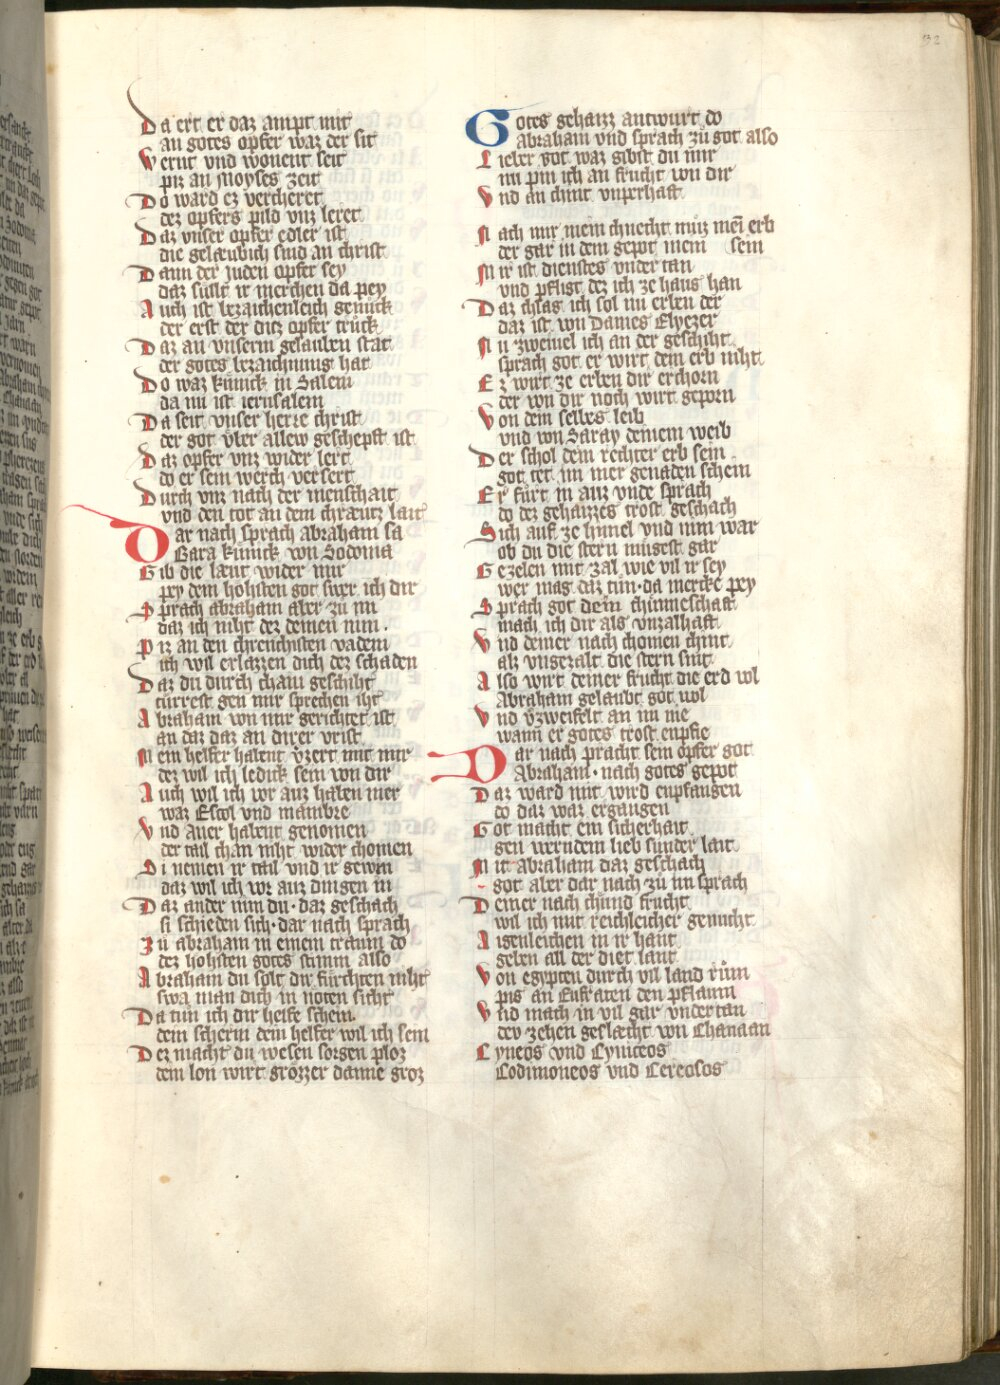 32
Da ert er daz ampt mit
an gotes opfer waz der sit
Wernt vnd wonent seit
piz an Moyses zeit
Do ward ez vercheret
dez opfers pild vnz leret
Daz vnser opfer edler ist
die gelæubich sind an christ
Dann der juden opfer sey
daz süllt ir merchen da pey
Auch ist bezaichenleich genuck
der erst der ditz opfer truck
Daz an vnserm gelauben stat
der gotes bezaichnung hat
Do waz künick in Salem
da nu ist ierusalem
Da seit vnser herre christ
der got vber allew geschepft ist
Daz opfer vnz wider lert
do er sein werch versert
Durch vnz nach der menschait
vnd den tot an dem chræutz lait
Dar nach sprach abraham sa
Bara künick von Sodoma
Gib die læut wider mir
pey dem höhsten got swer ich dir
Sprach abraham aber zu im
daz ich niht dez deinen nim.
Piz an den chrenchsten vadem
ich wil erlazzen dich dez schaden
Daz du durch chain geschiht
türrest gen mir sprechen iht
Abraham von mir gerichtet ist
an daz daz an direr vrist
Mein helfer habent vzert mit mir
dez wil ich ledick sein von dir
Auch wil ich vor auz haben mer
waz Escol vnd mambre
Vnd Aner habent genomen
der tail chan niht wider chomen
Di nemen ir tail vnd ir gewin
daz wil ich vor auz dingen in
Daz ander nim du · daz geschach
si schieden sich · dar nach sprach
Zu abraham in einem traum do
dez hohsten gotes stimm also
Abraham du solt dir fürchten niht
swa man dich in nöten sicht
Da tun ich dir helfe schein
dein scherm dein helfer wil ich sein
Dez macht du wesen sorgen ploz
dein lon wirt grözzer danne groz
Gotes gehaizz antwurt do
abraham vnd sprach zu got also
Lieber got waz gibst du mir
nu pin ich an frucht von dir
Vnd an chint vnperhaft
Nach mir mein chnecht muz mein erb
der gar in dem gepot mein sein
Mir ist dienstes vnder tan
vnd pfligt dez ich ze haus han
Daz chlag ich sol nu erben der
daz ist von Dames Elyezer
Nu zweiuel ich an der geschiht
sprach got er wirt dein erb niht
Ez wirt ze erben dir erchorn
der von dir noch wirt geporn
Von dein selbes leib
vnd von Saray deinem weib
Der schol dein rechter erb sein.
got tet im mer genaden schein
Er fürt in auz vnde sprach
do dez gehaizzes trost geschach
Sich auf ze himel vnd nim war
ob du die stern mügest gar
Gezelen mit zal wie vil ir sey
wer mag daz tun · da mercke pey
Sprach got dein chünneschaft
mach ich dir als vnzalhaft
Vnd deiner nach chomen chint
alz vngezalt die stern sint
Also wirt deiner frucht die erd vol
Abraham gelaubt got wol
Vnd vzweifelt an im nie
wann er gotes trost enpfie
Dar nach pracht sein opfer got
Abraham · nach gotes gepot
Daz ward mit wird enpfangen
do daz waz ergangen
Got macht ein sicherhait
gen werndem lieb sunder lait
Mit abraham daz geschach
got aber dar nach zu im sprach
Deiner nach chund frucht
wil ich mit reichleicher genucht
Aigenleichen in ir hant
geben all der diet lant
Von egypten durch vil land rüm
piz an Eufraten den pflaum
Vnd mach in vil gar vndertan
dev zehen geslæcht von Chanaan
Cyneos vnd Cyniceos
Codimoneos vnd Cereosos